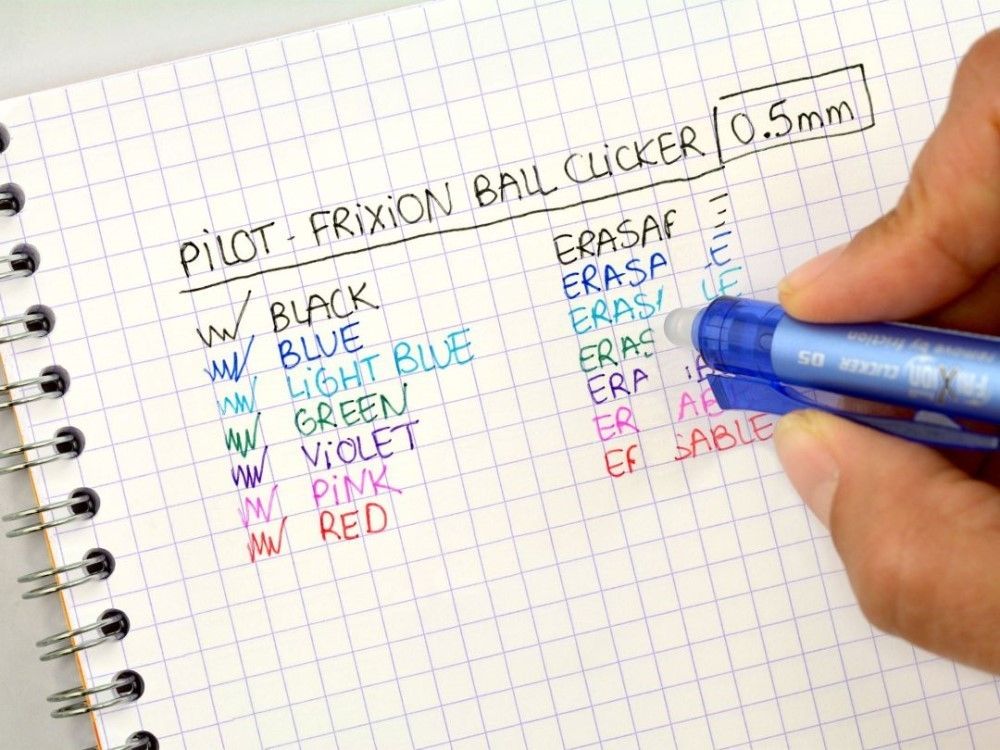 PILOT - FRIXION BALL CLICKER 0.5mm
BLACK
BLUE
LIGHT BLUE
GREEN
VIOLET
PINK
RED
ERASA
ERASA LE
ERAS LE
ERAS
ERA
ER AB
E SABLE
FRIXION
CLICKER 05